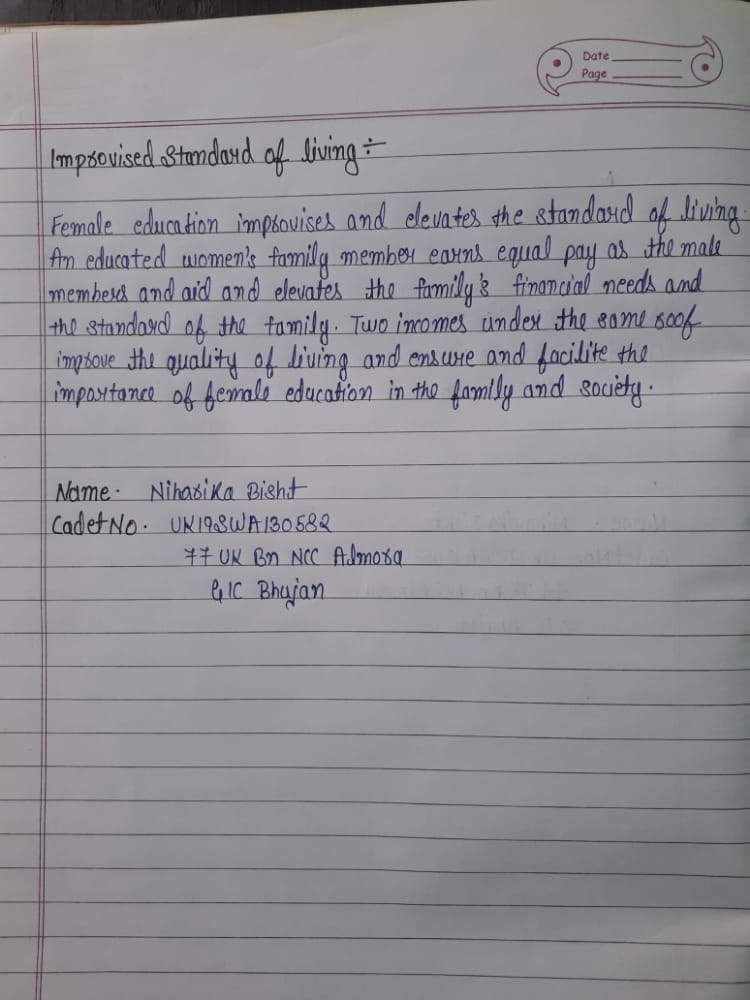 Date
Page
Improvised Standard of living ÷
Female education improvises and elevates the standard of living.
An educated women's family member earns equal pay as the male
members and aid and elevates the family's financial needs and
the standard of the family. Two incomes under the same roof
improve the quality of living and ensure and facilite the
importance of female education in the family and society.
Name. Niharika Bisht
Cadet No. UK19SWA130582
77 UK Bn NCC Almora
GIC Bhujan